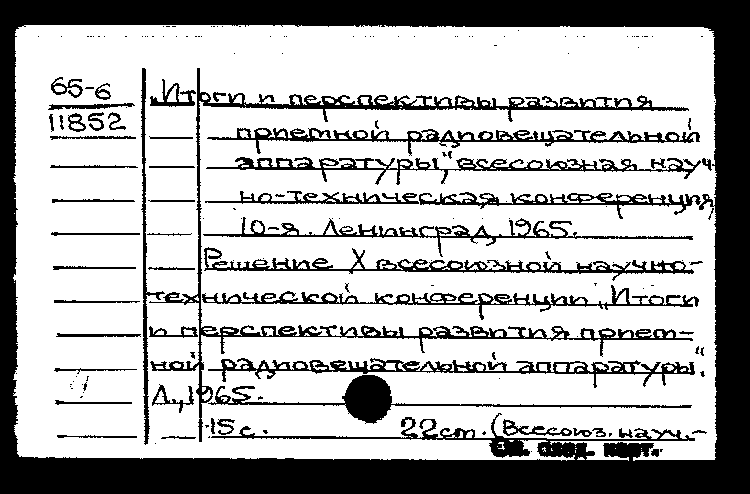 65-6
11852
„Итоги и перспективы развития
приемной радиовещательной
аппаратуры", всесоюзная науч-
но-техническая конференция,
10-я. Ленинград. 1965.
Решение X всесоюзной научно-
технической конференции „Итоги
и перспективы развития прием-
ной радиовещательной аппаратуры".
Л., 1965.
15 с. 22 cm. (Всесоюз. науч.-
См. след. карт.